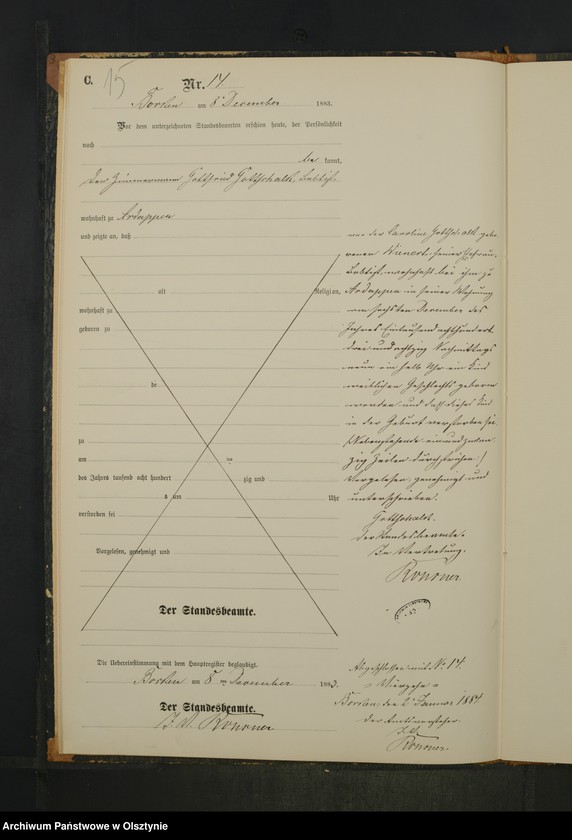 C.
15
Nr. 14
am 8 December 1883.
Vor dem unterzeichneten Standesbeamten erschien heute, der Persönlichkeit
nach
be kannt,
den Zimmermann Gottfried Gottschalk,
wohnhaft zu Ardappen
und zeigte an, daß
alt Religion,
wohnhaft zu
geboren zu
de
zu
am
des Jahres tausend acht hundert zig und
um Uhr
verstorben sei
Vorgelesen, genehmigt und
Der Standesbeamte.
von der Caroline Gottschalk gebo-
renen seiner Ehefrau,
wohnhaft bei ihm zu
Ardappen in seiner Wohnung
am sechsten December des
Jahres Eintausend achthundert
drei und achtzig Nachmittags
neun ein halb Uhr ein Kind
weiblichen Geschlechts geboren
worden und daß dieses Kind
in der Geburt verstorben sei.
Nebenstehende einundzwan-
zig Zeilen durchstrichen./
Vorgelesen, genehmigt und
unterschrieben.
Gottschalk.
Der Standesbeamte.
In Vertretung.
Die Uebereinstimmung mit dem Hauptregister beglaubigt.
am 8 December 1883.
Der Standesbeamte.
J. V.
Abgeschlossen mit No 14.
Vierzehn
den 2 Januar 1884
Der Amtsvorsteher.
J. V.
Archiwum Państwowe w Olsztynie